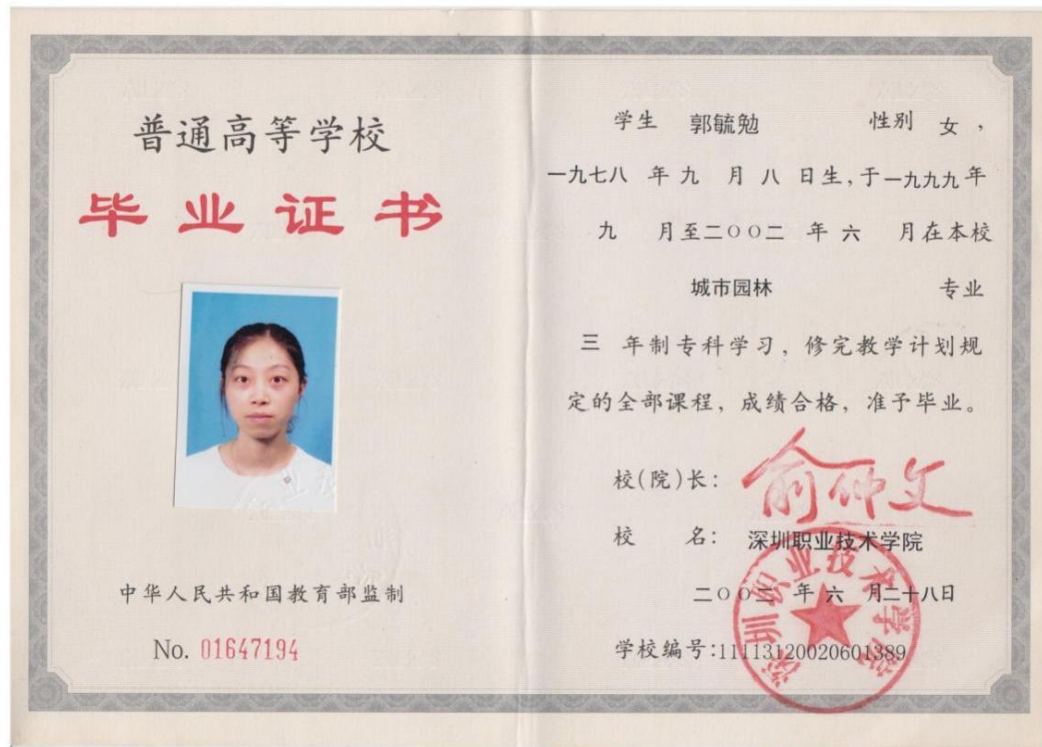 普通高等学校
毕业证书
中华人民共和国教育部监制
No. 01647194
学生 郭毓勉 性别 女,
一九七八 年 九 月 八 日生,于一九九九年
九 月至二〇〇二 年 六 月在本校
城市园林 专业
三 年制专科学习,修完教学计划规
定的全部课程,成绩合格,准予毕业。
校(院)长: 俞仲文
校 名: 深圳职业技术学院
二〇〇二 年 六 月二十八日
学校编号:11113120020601389
深圳职业技术学院